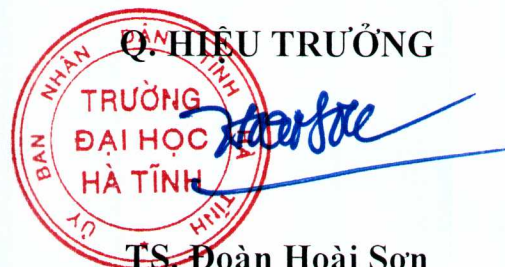 Q. HIỆU TRƯỞNG
ỦY BAN NHÂN DÂN TỈNH HÀ TĨNH
TRƯỜNG
ĐẠI HỌC
HÀ TĨNH
TS. Đoàn Hoài Sơn